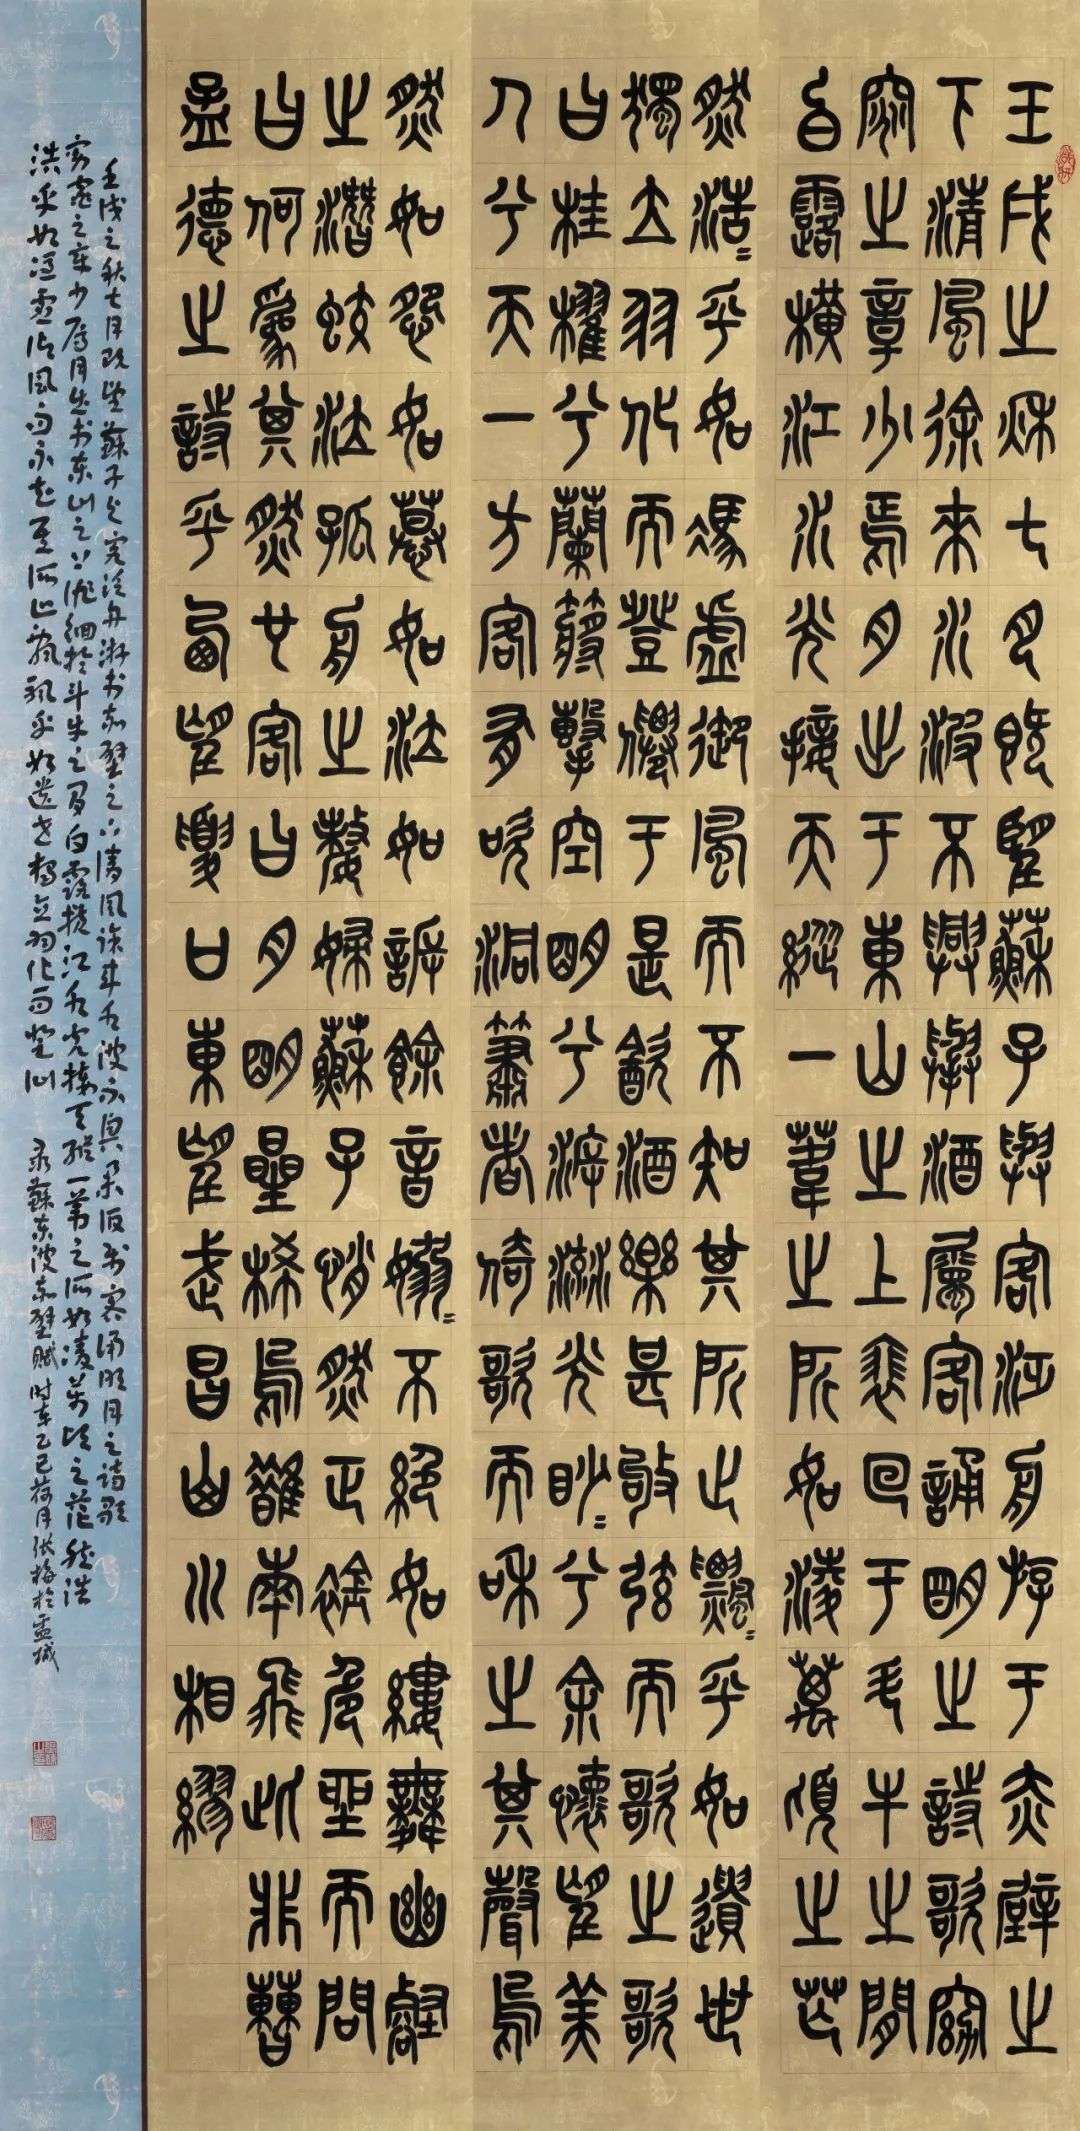 壬戌之秋七月既望蘇子與客泛舟游于赤壁之
下清風徐來水波不興舉酒屬客誦明之詩歌窈
窕之章少焉月出于東山之上裵回于斗牛之間
白露橫江水光接天縱一葦之所如淩萬頃之茫
然浩=乎如馮虛御風而不知其所止飄=乎如遺世
獨立羽化而登僊于是飲酒樂甚敂弦而歌之歌
曰桂櫂兮蘭槳擊空明兮泝流光眇=兮余懷望美
人兮天一方客有吹洞簫者倚歌而和之其聲烏
然如怨如慕如泣如訴餘音嫋=不絕如縷舞幽壑
之潛蛟泣孤舟之嫠婦蘇子愀然正襟危坐而問
曰何為其然也客曰月明星稀烏鵲南飛此非曹
孟德之詩乎西望夏口東望武昌山川相繆
壬戌之秋七月既望蘇子与客泛舟游于赤壁之下清風徐来水波不興举酒属客诵明月之诗歌
窈窕之章少焉月出于东山之上徘徊於斗牛之間白露横江水光接天縱一葦之所如凌萬頃之茫然浩
浩乎如馮虚御風而不知其所止飄飄乎如遺世獨立羽化而登仙 录蘇东坡赤壁賦 时在乙巳荷月张梅於盂城